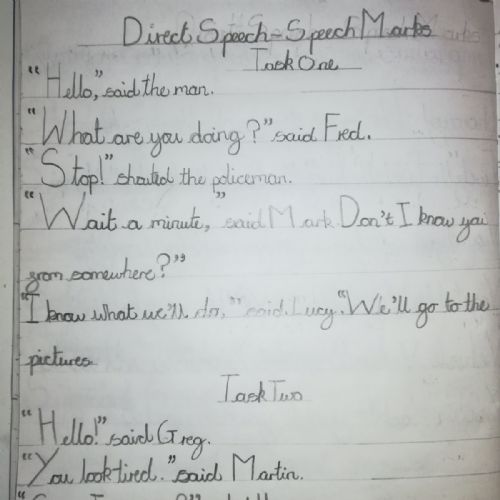 Direct Speech - Speech Marks
Task One
"Hello," said the man.
"What are you doing?" said Fred.
"Stop!" shouted the policeman.
"Wait a minute," said Mark Don't I know you
from somewhere?"
"I know what we'll do," said Lucy. "We'll go to the
pictures
Task Two
"Hello!" said Greg.
"You look tired." said Martin.